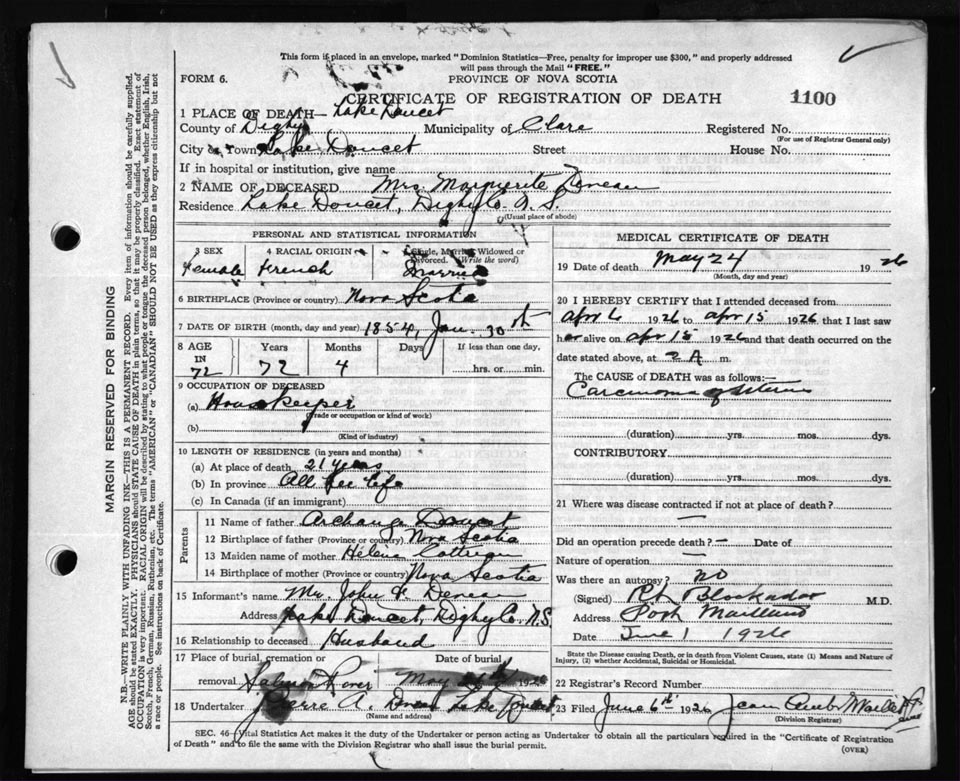 This form if placed in an envelope, marked "Dominion Statistics—Free, penalty for improper use $300," and properly addressed
will pass through the Mail "FREE."
FORM 6.
PROVINCE OF NOVA SCOTIA
CERTIFICATE OF REGISTRATION OF DEATH
1100
1 PLACE OF DEATH— Lake Doucet
County of Digby Municipality of Clare Registered No.
(For use of Registrar General only)
City or Town Lake Doucet Street House No.
If in hospital or institution, give name
2 NAME OF DECEASED Mrs. Marguerite Deveau
Residence Lake Doucet, Digby Co. N.S.
(Usual place of abode)
PERSONAL AND STATISTICAL INFORMATION
3 SEX 4 RACIAL ORIGIN 5 Single, Married, Widowed or Divorced. (Write the word)
Female French Married
6 BIRTHPLACE (Province or country) Nova Scotia
7 DATE OF BIRTH (month, day and year) 1854, Jan. 30th
8 AGE IN Years Months Days If less than one day,
72 72 4 hrs. or min.
9 OCCUPATION OF DECEASED
(a) Housekeeper
(Trade or occupation or kind of work)
(b)
(Kind of industry)
10 LENGTH OF RESIDENCE (in years and months)
(a) At place of death 21 years
(b) In province All her life
(c) In Canada (if an immigrant)
Parents
11 Name of father Archange Doucet
12 Birthplace of father (Province or country) Nova Scotia
13 Maiden name of mother Helene
14 Birthplace of mother (Province or country) Nova Scotia
15 Informant's name Mr. John F. Deveau
Address Lake Doucet, Digby Co. N.S.
16 Relationship to deceased Husband
17 Place of burial, cremation or Date of burial
removal Salmon River May 1926
18 Undertaker Pierre A. Lake Doucet
(Name and address)
MEDICAL CERTIFICATE OF DEATH
19 Date of death May 24 1926
(Month, day and year)
20 I HEREBY CERTIFY that I attended deceased from
Apr 6 1926 to Apr 15 1926 that I last saw
her alive on Apr 15 1926 and that death occurred on the
date stated above, at 2 A m.
The CAUSE OF DEATH was as follows:
Carcinoma of uterus
(duration) yrs. mos. dys.
CONTRIBUTORY
(duration) yrs. mos. dys.
21 Where was disease contracted if not at place of death?
—
Did an operation precede death? — Date of
Nature of operation —
Was there an autopsy? no
(Signed) Blackadar M.D.
Address Port Maitland
Date June 1 1926
State the Disease causing Death, or in death from Violent Causes, state (1) Means and Nature of
Injury, (2) whether Accidental, Suicidal or Homicidal.
22 Registrar's Record Number
23 Filed June 6th 1926
(Division Registrar)
SEC. 46 Vital Statistics Act makes it the duty of the Undertaker or person acting as Undertaker to obtain all the particulars required in the "Certificate of Registration
of Death" and to file the same with the Division Registrar who shall issue the burial permit.
(OVER)
MARGIN RESERVED FOR BINDING
N.B.—WRITE PLAINLY WITH UNFADING INK—THIS IS A PERMANENT RECORD. Every item of information should be carefully supplied.
AGE should be stated EXACTLY. PHYSICIANS should STATE CAUSE OF DEATH in plain terms, so that it may be properly classified. Exact statement of
OCCUPATION is very important. RACIAL ORIGIN will be described by stating to what people or tongue the deceased person belonged, whether English, Irish,
Scotch, French, German, Russian, Ruthenian, etc. The terms "AMERICAN" or "CANADIAN" SHOULD NOT BE USED as they express citizenship but not
a race or people. See instructions on back of Certificate.